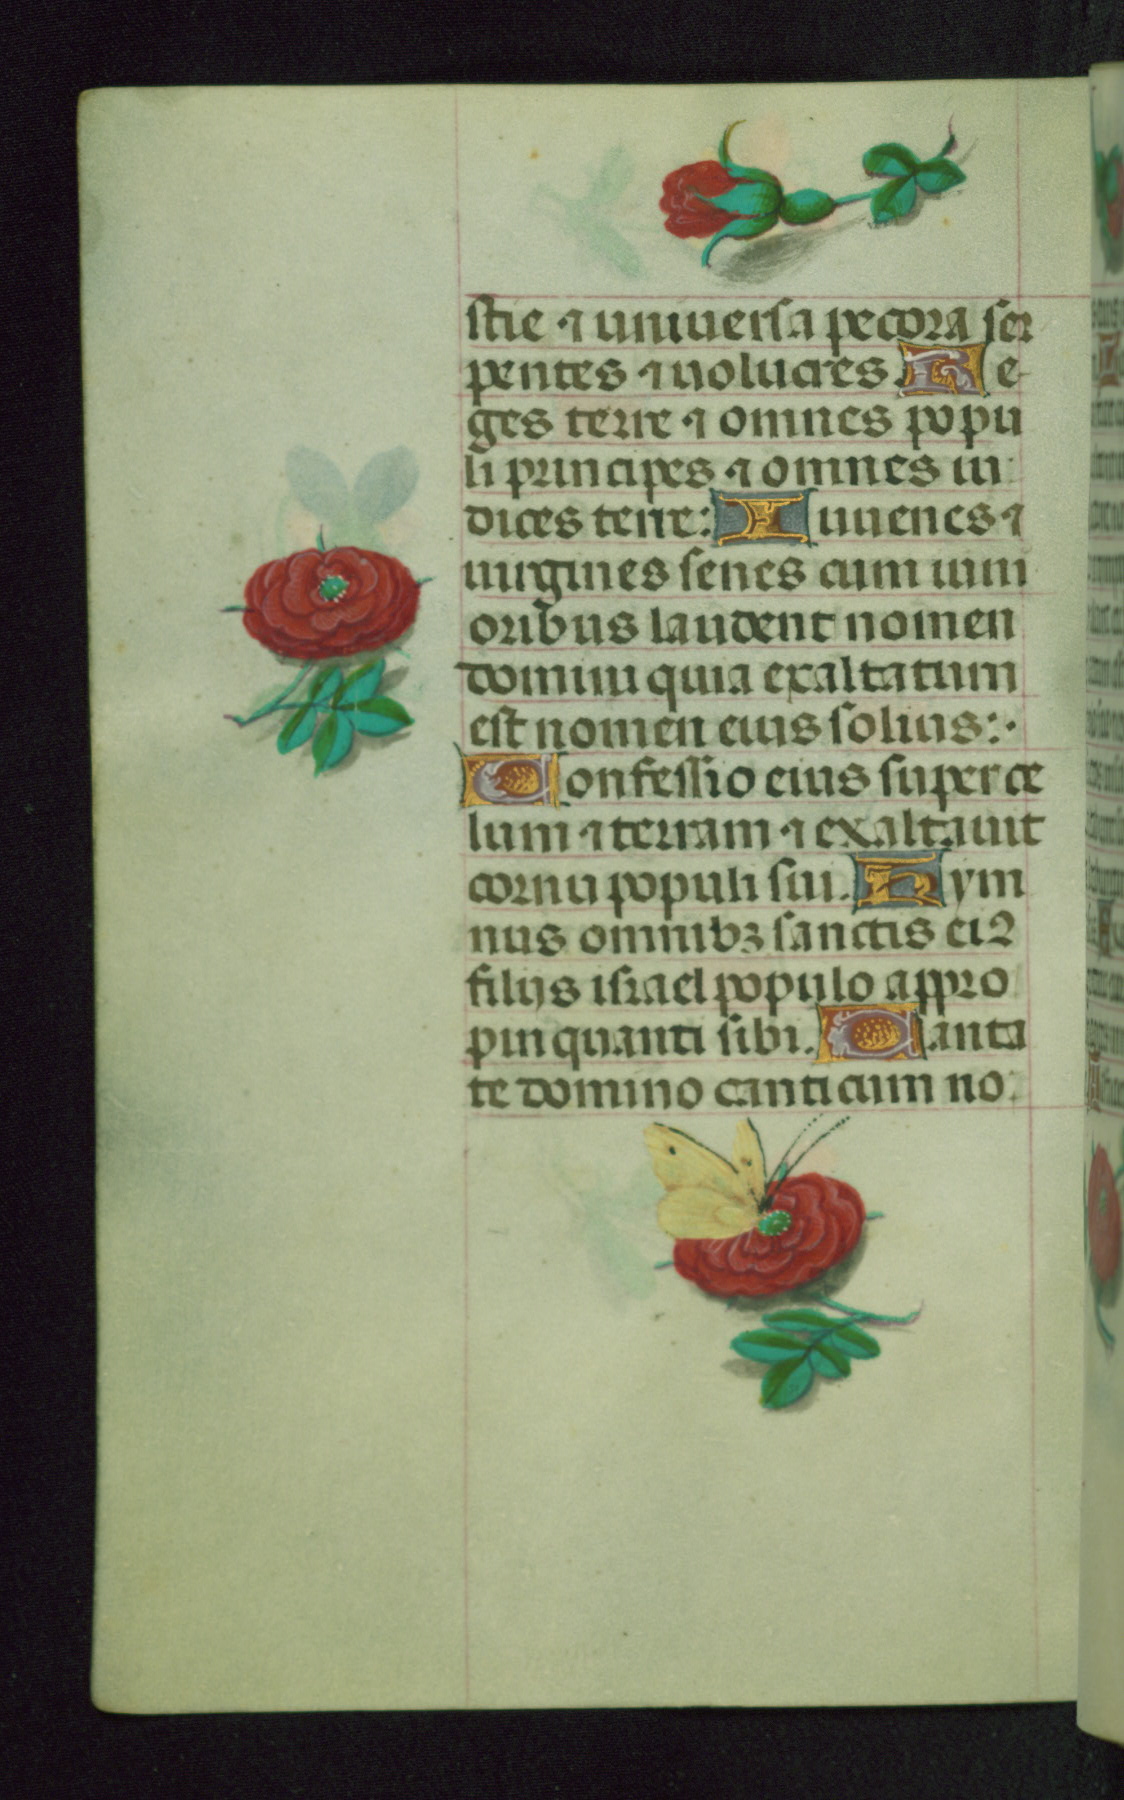 stie ⁊ uniuersa pecora ser
pentes ⁊ uolucres. Re
ges terre ⁊ omnes popu
li principes ⁊ omnes iu
dices terre: Iuuenes ⁊
uirgines senes cum iuni
oribus laudent nomen
domini quia exaltatum
est nomen eius solius:·
Confessio eius super ce
lum ⁊ terram ⁊ exaltauit
cornu populi sui. Hym
nus omnibꝫ sanctis eiꝰ
filijs israel populo appro
pinquanti sibi. Canta
te domino canticum no